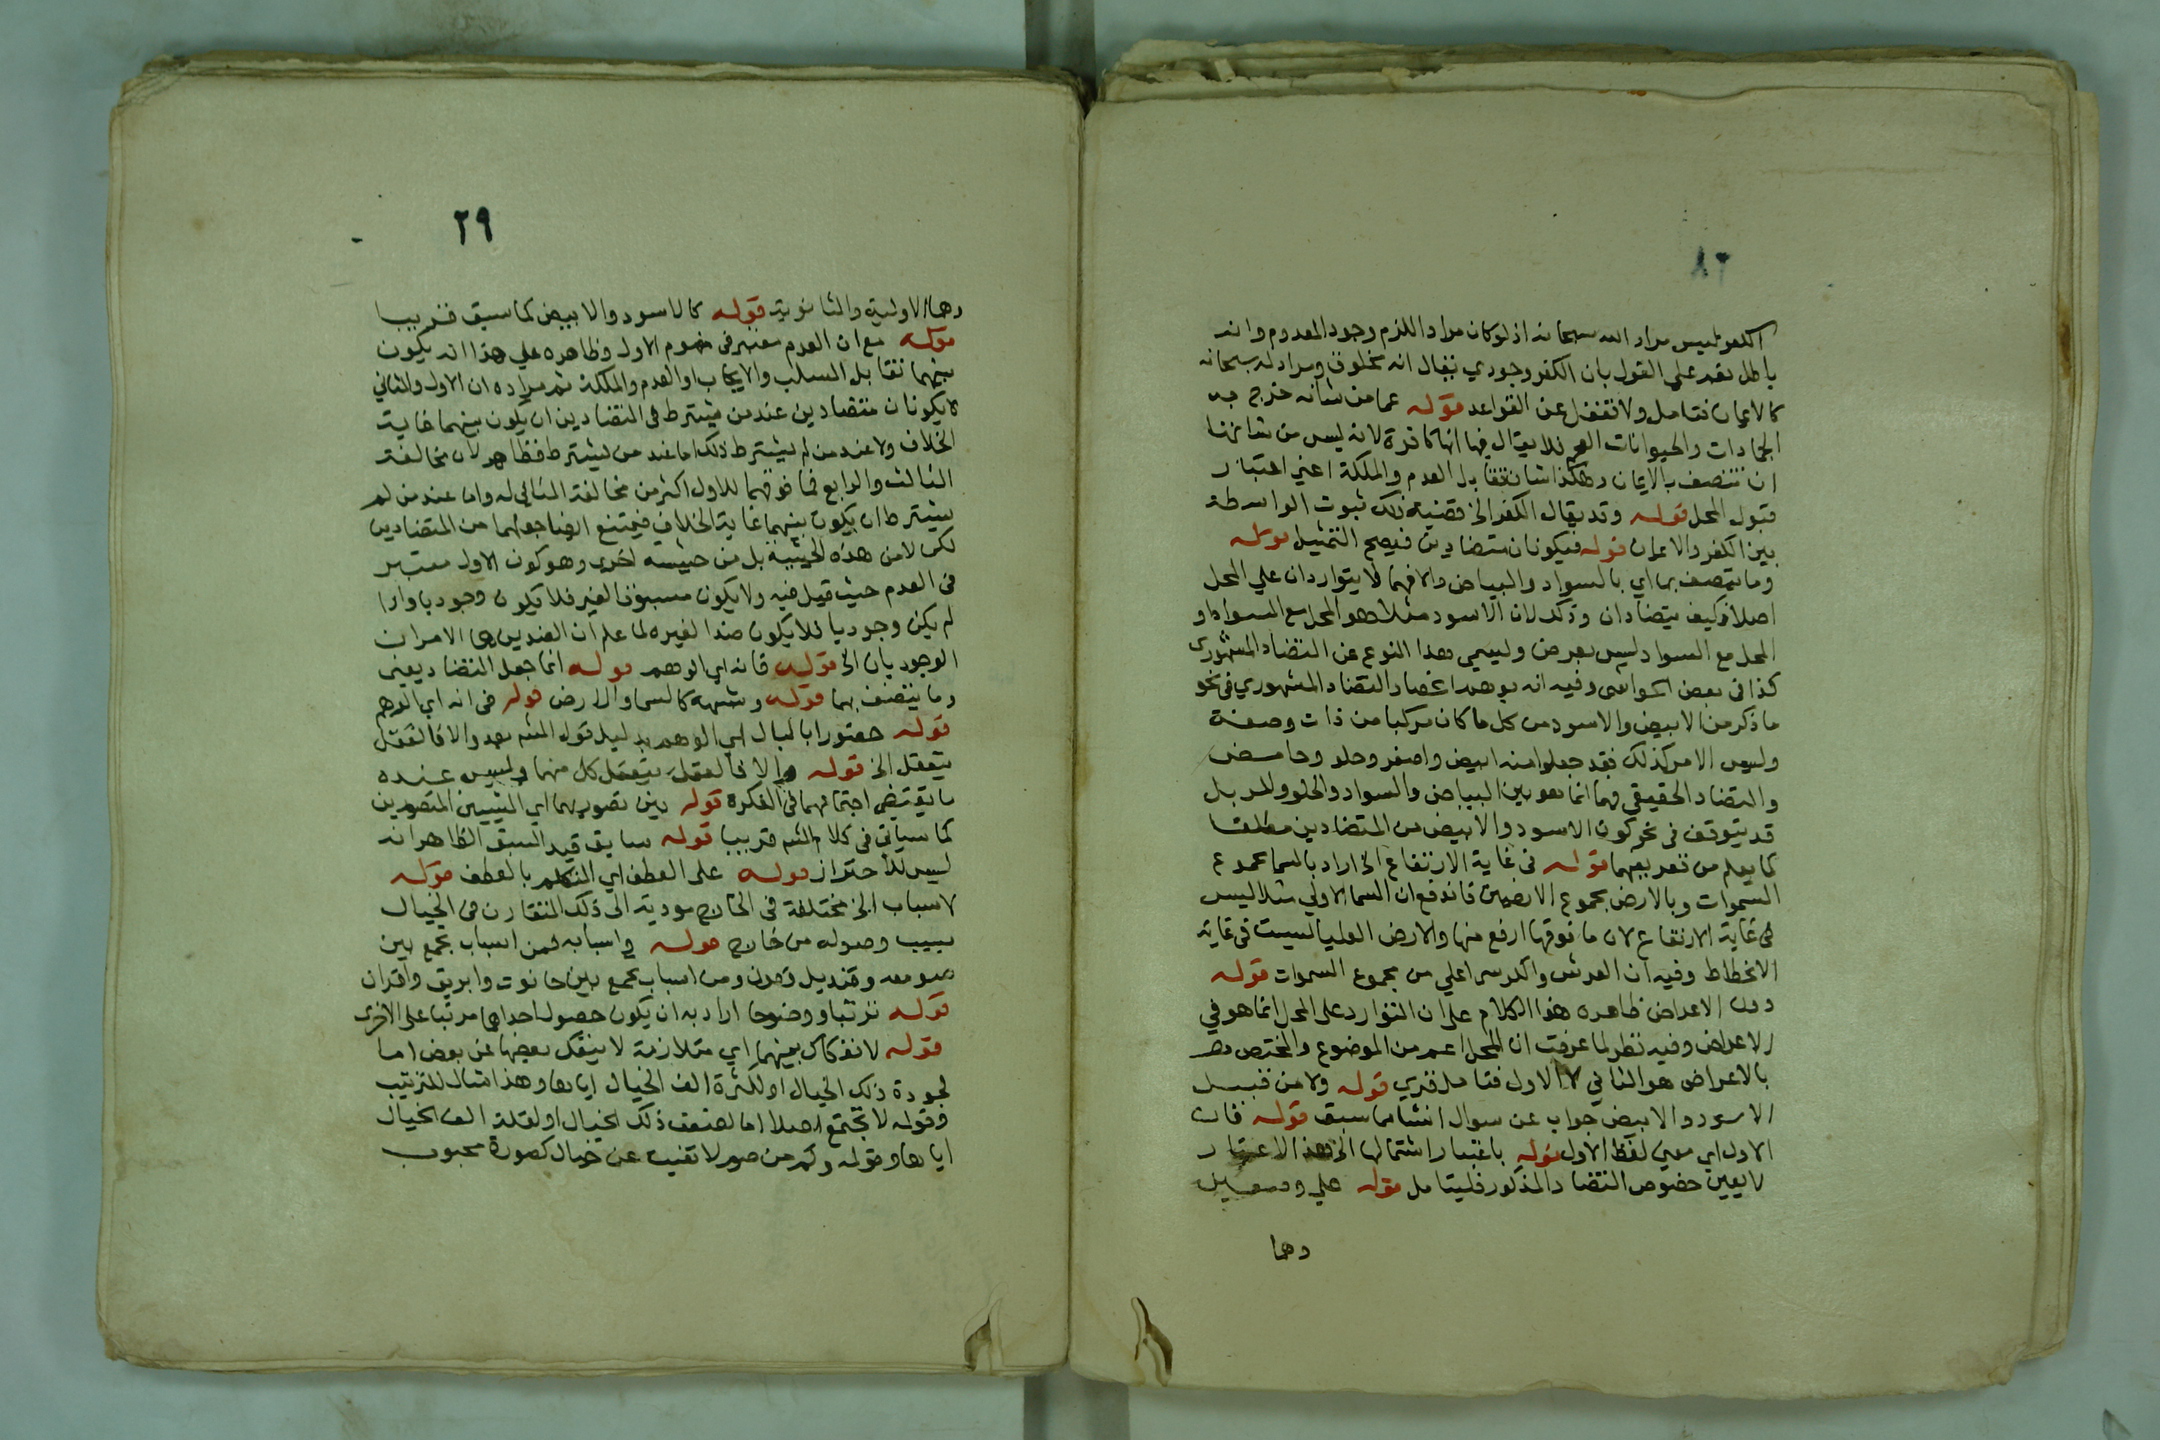 الكفر فليس مراد الله سبحانه اذ لو كان مرادا للزم وجود المعدوم وانه
باطل نعم على القول بان الكفر وجودي يقال انه مخلوق ومراد له سبحانه
كالايمان فتامل ولا تغفل عن القواعد قوله عما من شانه خرج به
الجمادات والحيوانات العجم فلا يقال فيها انها كافرة لانه ليس من شانها
ان تتصف بالايمان وهكذا شان تقابل العدم والملكة اعني اعتبار
قبول المحل قوله وقد يقال الكفر الخ قضية ذلك ثبوت الواسطة
بين الكفر والايمان قوله فيكونان متضادين فيصح التمثيل قوله
وما يتصف بها اي بالسواد والبياض والا فهما لا يتواردان علي المحل
اصلا فكيف يتضادان وذلك لان الاسود مثلا هو المحل مع السواد و
المحل مع السواد ليس بعرض وليسمي هذا النوع عن التضاد المشهوري
كذا في بعض الحواشي وفيه انه يوهم انحصار التضاد المشهوري في نحو
ما ذكر من الابيض والاسود من كل ما كان مركبا من ذات وصفة
وليس الامر كذلك فقد جعلوا منه ابيض واصفر وحلو وحامض
والتضاد الحقيقي فهما انما هو بين البياض والسواد والحلو والمر بل
قد يتوقف في نحو كون الاسود والابيض من المتضادين مطلقا
كما يعلم من تعريفهما قوله في غاية الارتفاع الخ اراد بالسما مجموع
السموات وبالارض مجموع الارضين فاندفع ان السما الاولي مثلا ليس
في غاية الارتفاع لان ما فوقها ارفع منها والارض العليا ليست في غاية
الانحطاط وفيه ان العرش والكرسي اعلي من مجموع السموات قوله
دون الاعراض ظاهره هذا الكلام على ان التوارد على المحل انما هو في
الاعراض وفيه نظر لما عرفت ان المحل اعم من الموضوع والمختص
بالاعراض هو الثاني لا الاول فتامل قوله ولا من قبيل
الاسود والابيض جواب عن سوال انشا مما سبق قوله فان
الاول اي معنى لفظ الاول قوله باعتبار اشتمالها الخ هذا الاعتبار
لا يعين خصوص التضاد المذكور فليتامل قوله علي وصفين
وهما
٢٩
وهما الاولية والثانوية قوله كالاسود والابيض كما سبق قريبا
قوله مع ان العدم معتبر في مفهوم الاول وظاهره علي هذا انه يكون
بينهما تقابل السلب والايجاب او العدم والملكة ثم مراده ان الاول والثاني
لا يكونان متضادين عند من يشترط في المتضادين ان يكون بينهما غاية
الخلاف ولا عند من لم يشترط ذلك اما عند من يشترط فظاهر لان مخالفة
الثالث والرابع فما فوقهما للاول اكثر من مخالفة الثاني له واما عند من لم
يشترط ان يكون بينهما غاية الخلاف فيمتنع ايضا جعلهما من المتضادين
لكن لا من هذه الحيثية بل من حيثية اخرى وهو كون الاول معتبر
في العدم حيث قيل فيه ولا يكون مسبوقا لغير فلا يكون وجوديا واذا
لم يكن وجوديا فلا يكون ضدا لغيره لما علم ان الضدين هما الامران
الوجوديان الخ قوله فانه اي الوهم قوله انما جعل التضاد يعني
وما يتصف بهما قوله وشبهه كالسما والارض قوله في انه اي الوهم
قوله حضورا بالبال اي الوهم بدليل قول الشم بعد والا فالعقل
يتعقل الخ قوله والا فالعقل يتعقل كل منهما وليس عنده
ما يقتضي اجتماعهما في الفكرة قوله بين تصوريهما اي الشيئين المتصورين
كما سياتي في كلام الشم قريبا قوله سابق قيد السبق الظاهر انه
ليس للاحتراز قوله على العطف اي التكلم بالعطف قوله
لاسباب الخ مختلفة في الخارج مودية الى ذلك التقارن في الخيال
بسبب وصوله من خارج قوله واسبابه فمن اسباب تجمع بين
صومعه وقنديل وقران ومن اسباب تجمع بين حانوت وابريق واقران
قوله ترتبا ووضوحا اراد به ان يكون حصول احداهما مرتبا على الاخرى
قوله لا انفكاك بينهما اي متلازمة لا ينفك بعضها عن بعض اما
لجودة ذلك الخيال او لكثرة الف الخيال اياها وهذا مثال للترتيب
وقوله لا تجتمع اصلا اما لضعف ذلك الخيال او لقلة الف الخيال
اياها وقوله وكم من صور لا تغيب عن خيال كصورة محبوب